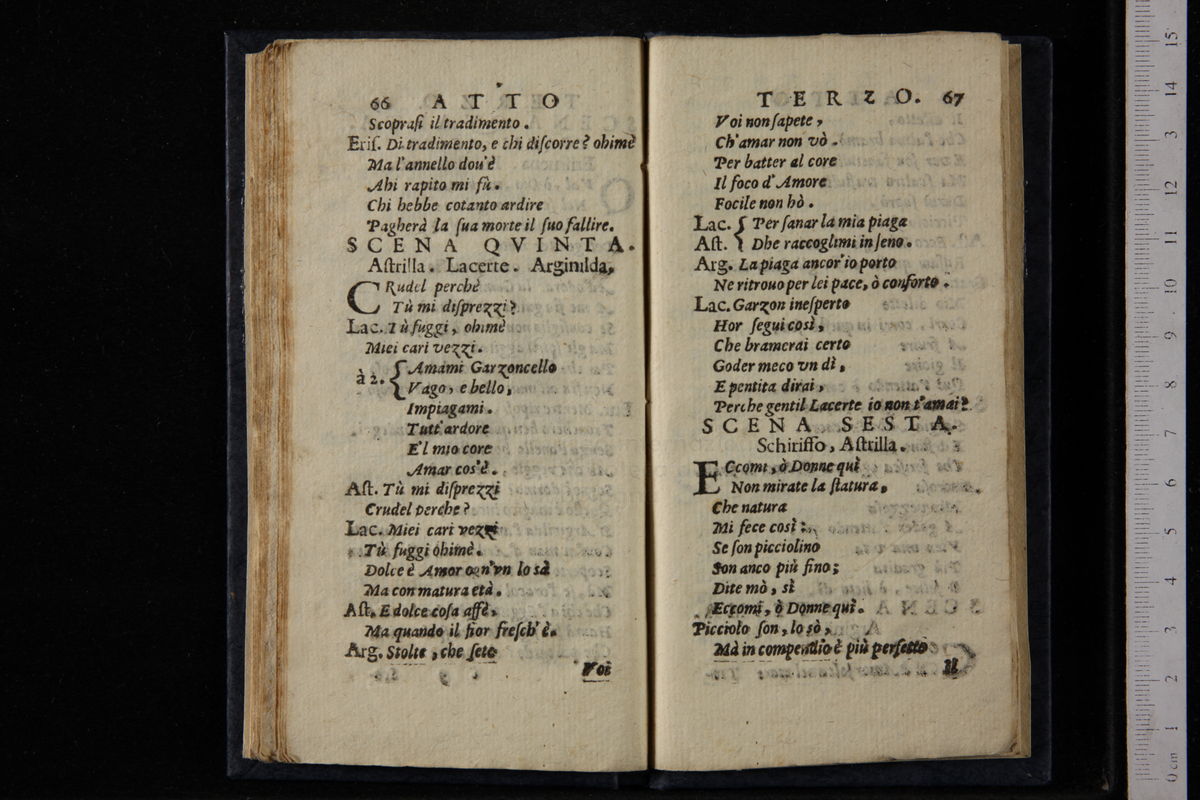 66 ATTO
Scoprasi il tradimento.
Eriſ. Di tradimento, e chi diſcorre? ohimè
Ma l'annello dou'è
Ahi rapito mi fù.
Chi hebbe cotanto ardire
Pagherà la ſua morte il ſuo fallire.
SCENA QVINTA.
Aſtrilla. Lacerte. Arginilda,
CRudel perchè
Tù mi diſprezzi?
Lac. Tù fuggi, ohimè
Miei cari vezzi.
à 2. { Amami Garzoncello
Vago, e bello,
Impiagami.
Tutt'ardore
E'l mio core
Amar cos'è.
Aſt. Tù mi diſprezzi
Crudel perche?
Lac. Miei cari vezzi
Tù fuggi ohimè.
Dolce è Amor ogn'vn lo sà
Ma con matura età.
Aſt. E dolce coſa affè,
Ma quando il fior freſch'è.
Arg. Stolte, che ſete
Voi
TERZO. 67
Voi non ſapete,
Ch'amar non vò.
Per batter al core
Il foco d'Amore
Focile non hò.
Lac. { Per ſanar la mia piaga
Aſt. { Dhe raccoglimi in ſeno.
Arg. La piaga ancor'io porto
Ne ritrouo per lei pace, ò conforto.
Lac. Garzon ineſperto
Hor ſegui così,
Che bramerai certo
Goder meco vn dì,
E pentita dirai,
Perche gentil Lacerte io non t'amai?
SCENA SESTA.
Schiriffo, Aſtrilla.
ECcomi, ò Donne quì
Non mirate la ſtatura,
Che natura
Mi fece così:
Se ſon picciolino
Son anco più fino;
Dite mò, sì
Eccomi, ò Donne quì.
Picciolo ſon, lo sò,
Mà in compendio è più perfetto
Il